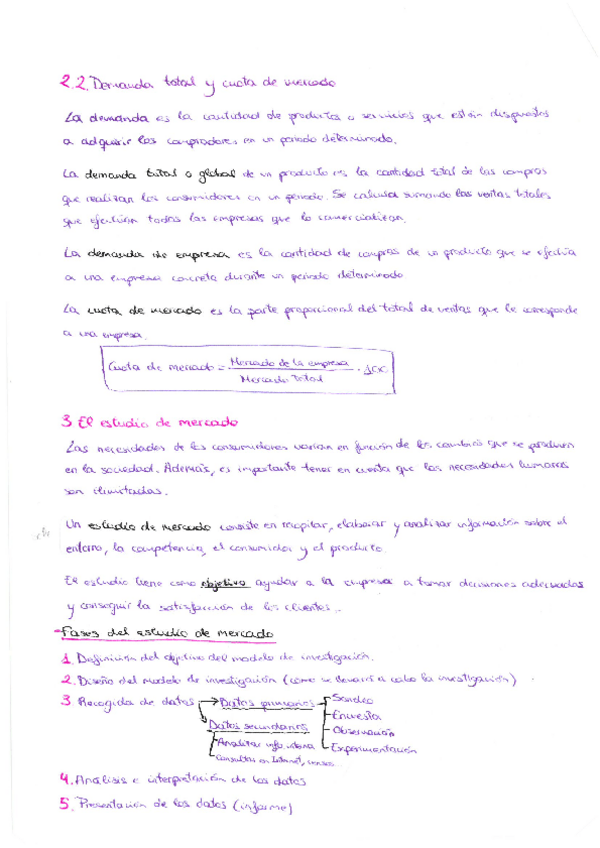 2.2. Demanda total y cuota de mercado
La demanda es la cantidad de productos o servicios que están dispuestos
a adquirir los compradores en un periodo determinado.
La demanda total o global de un producto es la cantidad total de las compras
que realizan los consumidores en un periodo. Se calcula sumando las ventas totales
que efectúan todas las empresas que lo comercializan.
La demanda de empresa es la cantidad de compras de un producto que se efectúa
a una empresa concreta durante un periodo determinado
La cuota de mercado es la parte proporcional del total de ventas que le corresponde
a una empresa.
Cuota de mercado = Mercado de la empresa / Mercado total · 100
3 El estudio de mercado
Las necesidades de los consumidores varían en función de los cambios que se producen
en la sociedad. Además, es importante tener en cuenta que las necesidades humanas
son ilimitadas.
Un estudio de mercado consiste en recopilar, elaborar y analizar información sobre el
entorno, la competencia, el consumidor y el producto.
El estudio tiene como objetivo ayudar a la empresa a tomar decisiones adecuadas
y conseguir la satisfacción de los clientes.
Fases del estudio de mercado
1. Definición del objetivo del modelo de investigación.
2. Diseño del modelo de investigación (como se llevará a cabo la investigación)
3. Recogida de datos → Datos primarios
Sondeo
Encuesta
Observación
Experimentación
Datos secundarios
Analizar info interna
Consultas en Internet, censo
4. Análisis e interpretación de los datos
5. Presentación de los datos (informe)